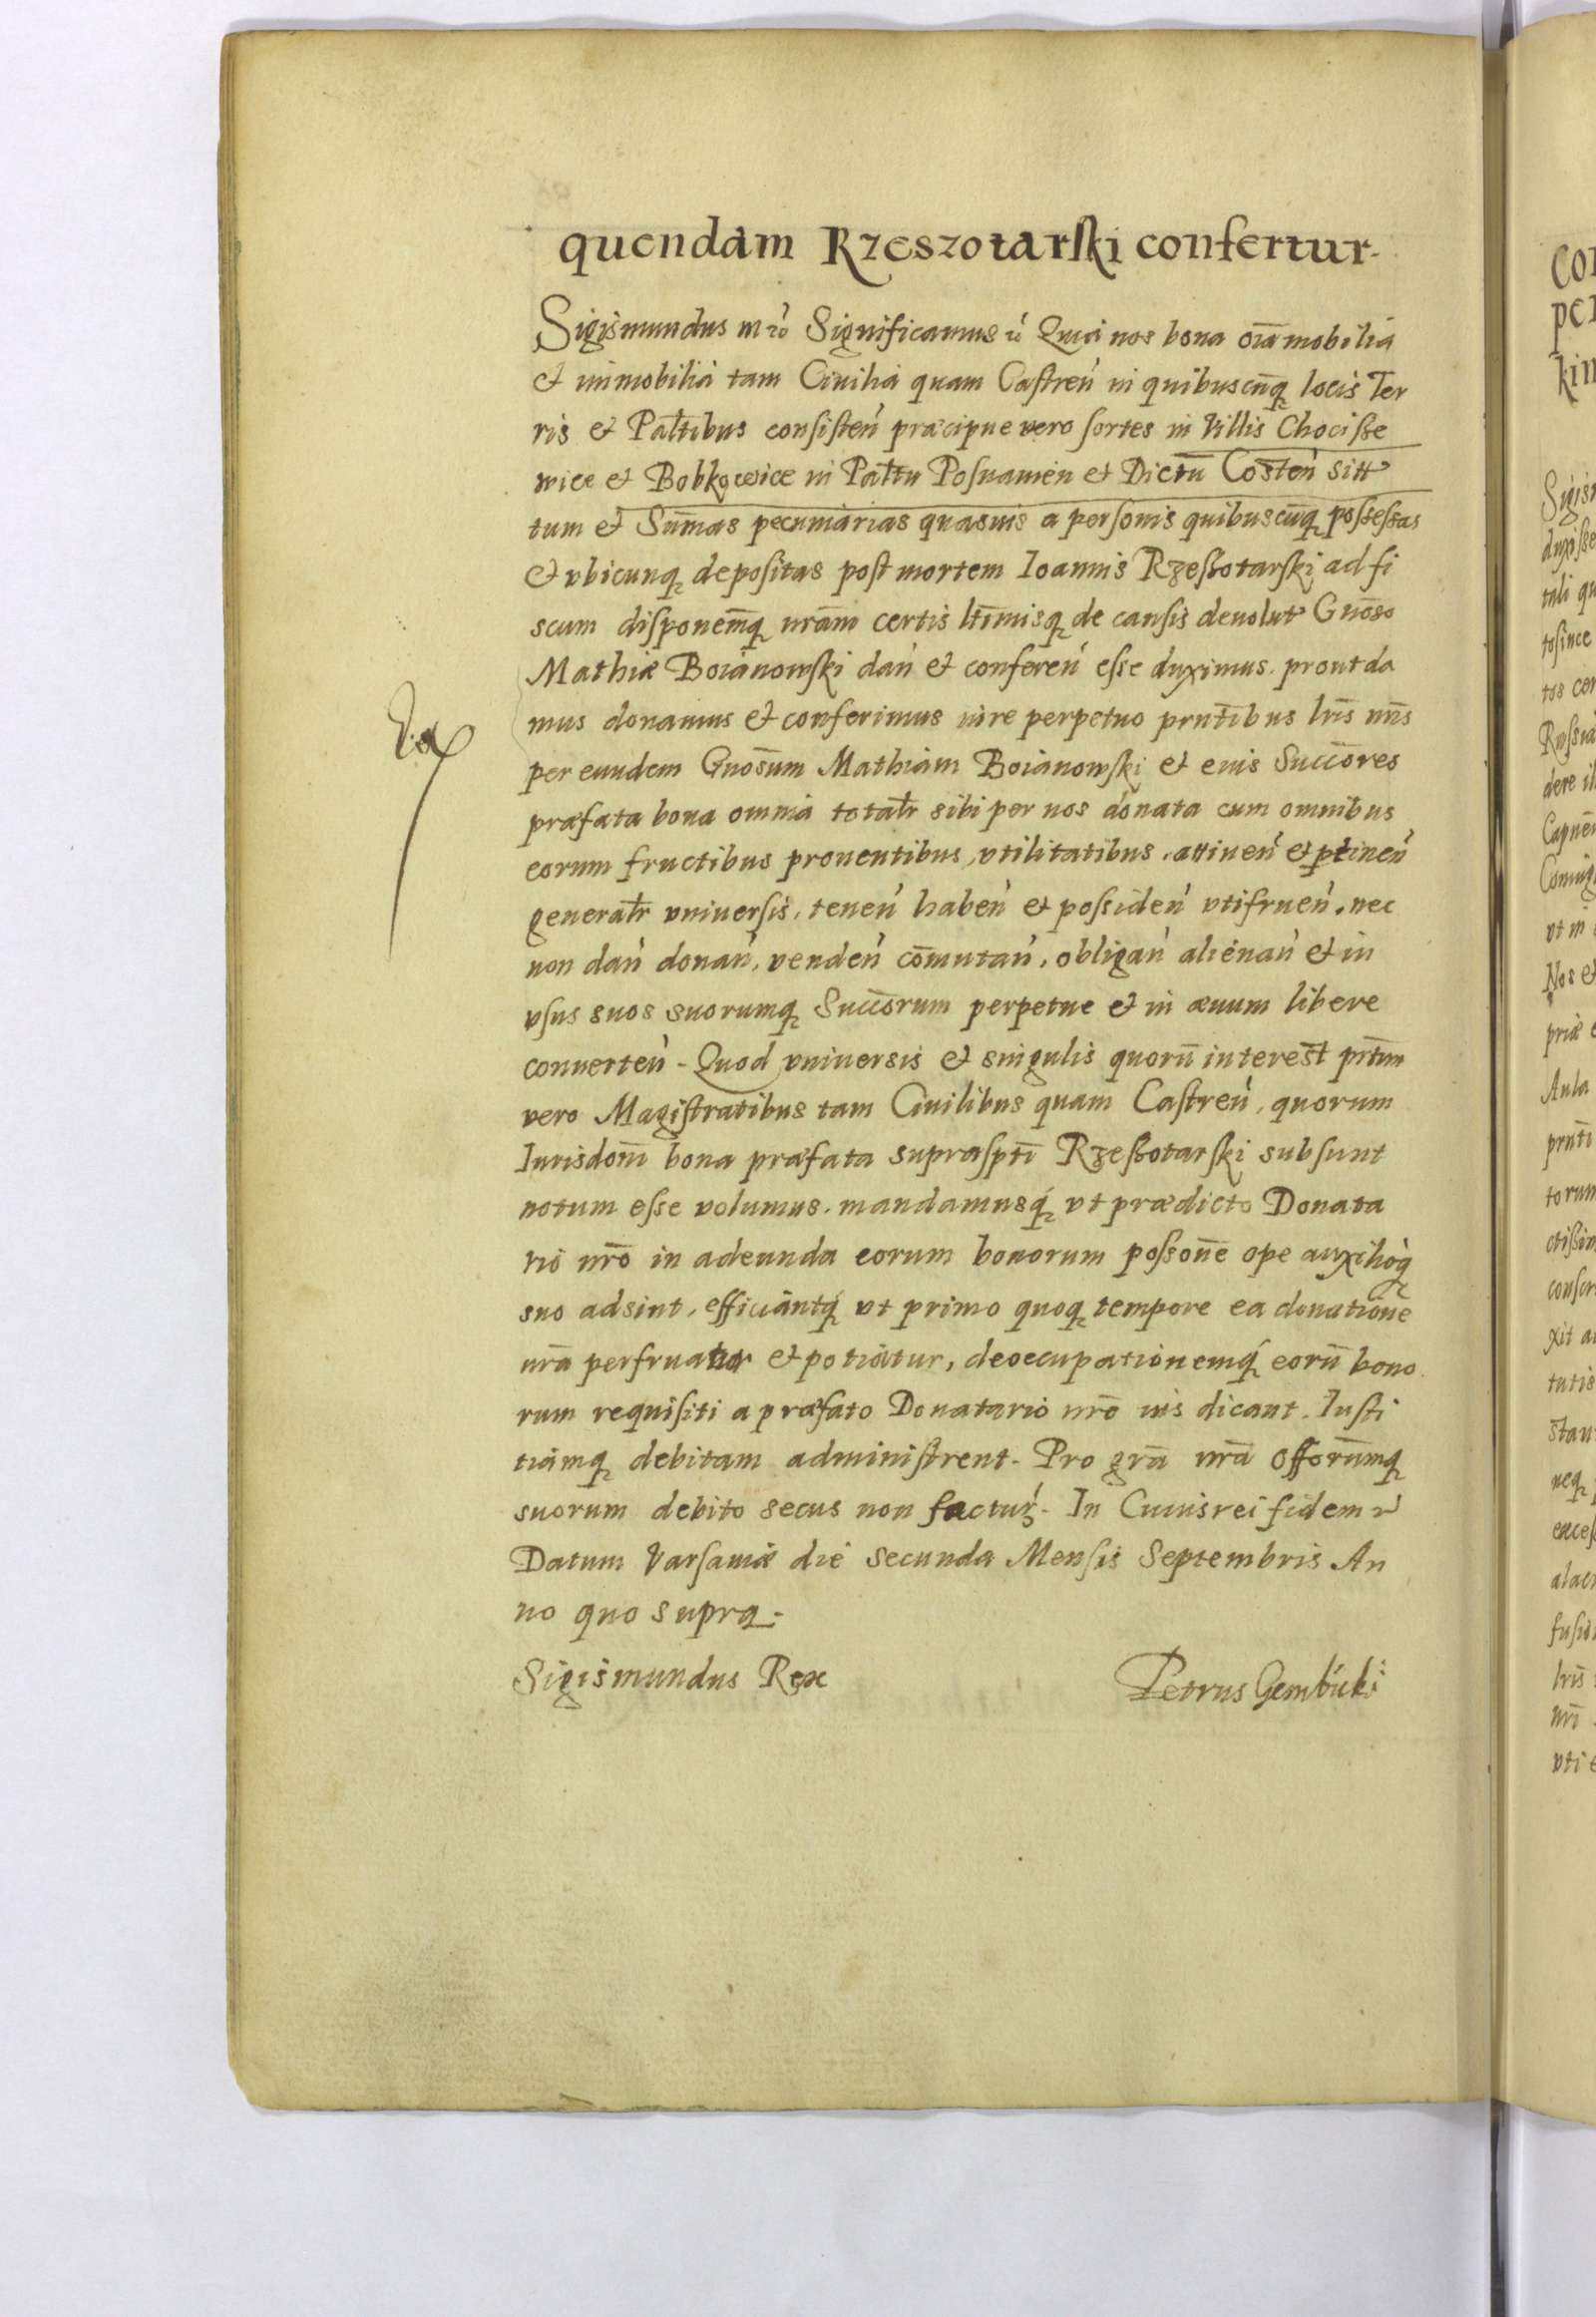 quendam Rzeszotarſki confertur.
Sigiſmundus Significamus Quia nos bona oīa mobilia
et immobilia tam Ciuilia quam Caſtreń in quibuscūq; locis Ter
ris et Paltibus conſiſteń præcipue vero ſortes in Villis Chociſze
wice et Bobkowice in Paltu Poſnanień et Coſteń sitt
tum et Sum̄as pecuniarias quasuis a perſonis quibuscūq; poſseſsas
et vbicunq; depoſitas poſt mortem Ioannis Rzeſzotarſki ad fi
scum diſponem̄q; nrām certis ltīmisq; de cauſis deuolut Gnōso
Mathiæ Boianowſki dań et confereń eſse duximus. prout da
mus donamus et conferimus iure perpetuo prntībus lrīs nrīs
per eundem Gnōsum Mathiam Boianowſki et eius Succōres
præfata bona omnia totalr sibi per nos donata cum omnibus
eorum fructibus prouentibus, vtilitatibus, attineń et ptineń
generalr vniuerſis, teneń habeń et poſsideń vtifrueń, nec
non dań donań, vendeń com̄utań, obligań alienań et in
vſus suos suorumq; Succōrum perpetue et in æuum libere
conuerteń. Quod vniuersis et singulis quorū intereſt prtīm
vero Magiſtratibus tam Ciuilibus quam Caſtreń, quorum
Iurisdonī bona præfata supraſptī Rzeſzotarſki subſunt
notum eſse volumus. mandamusq; vt prædicto Donata
rio nrō in adeunda eorum bonorum poſsonē ope auxilioq;
suo adsint, efficiantq; vt primo quoq; tempore ea donatione
nrā perfruatur et potiatur, deoccupationemq; eorū bono
rum requiſiti a præfato Donatario nrō ius dicant. Iuſti
tiamq; debitam adminiſtrent. Pro grā nrā Offorūmq;
suorum debito secus non factur. In Cuius rei fidem
Datum Varſauiæ die secunda Menſis Septembris An
no quo supra.
Sigiſmundus Rex
Petrus Gembicki